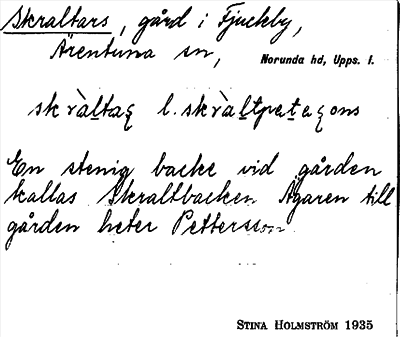 Skraltars, gård i Fjuckby,
Ärentuna sn,
Norunda hd, Upps. l.
skràltaʂ l. skràltpetaʂons
En stenig backe vid gården
kallas Skraltbacken Ägaren till
gården heter Pettersson
STINA HOLMSTRÖM 1935